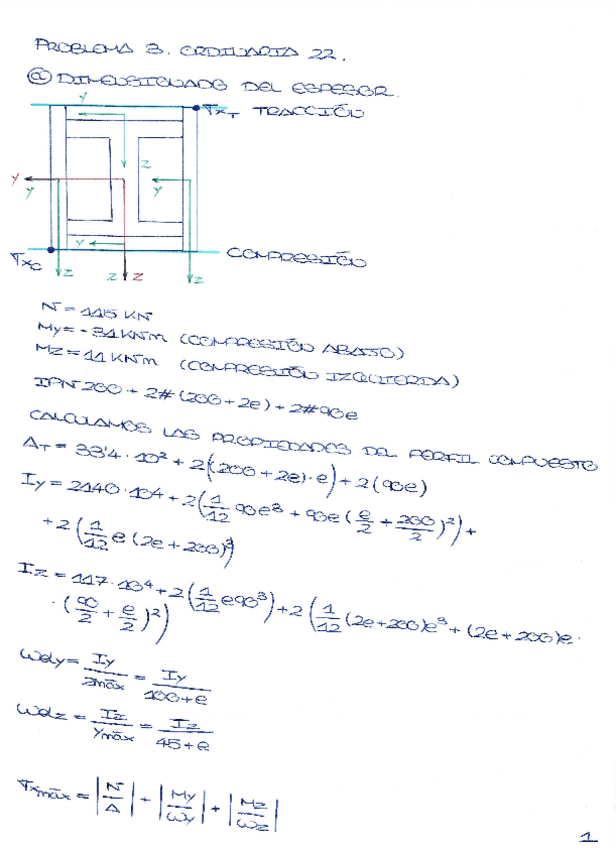 PROBLEMA 3. ORDINARIA 22.
ⓐ DIMENSIONADO DEL ESPESOR.
Y
σxT TRACCIÓN
Z
Y
Y
Y
Y
COMPRESIÓN
σxC
Z
Z Z
Z
N = 115 KN
My = -31 KNm (COMPRESIÓN ABAJO)
Mz = 11 KNm (COMPRESIÓN IZQUIERDA)
IPN 200 + 2#(200+2e) + 2#90e
CALCULAMOS LAS PROPIEDADES DEL PERFIL COMPUESTO
AT = 33'4·10² + 2((200+2e)·e) + 2(90e)
Iy = 2140·10⁴ + 2(1/12 90e³ + 90e(e/2 + 200/2)²) +
+ 2(1/12 e(2e+200)³)
Iz = 117·10⁴ + 2(1/12 e90³) + 2(1/12 (2e+200)e³ + (2e+200)e·
·(90/2 + e/2)²)
Wely = Iy/zmáx = Iy/100+e
Welz = Iz/ymáx = Iz/45+e
σxmáx = |N/A| + |My/Wy| + |Mz/Wz|
1